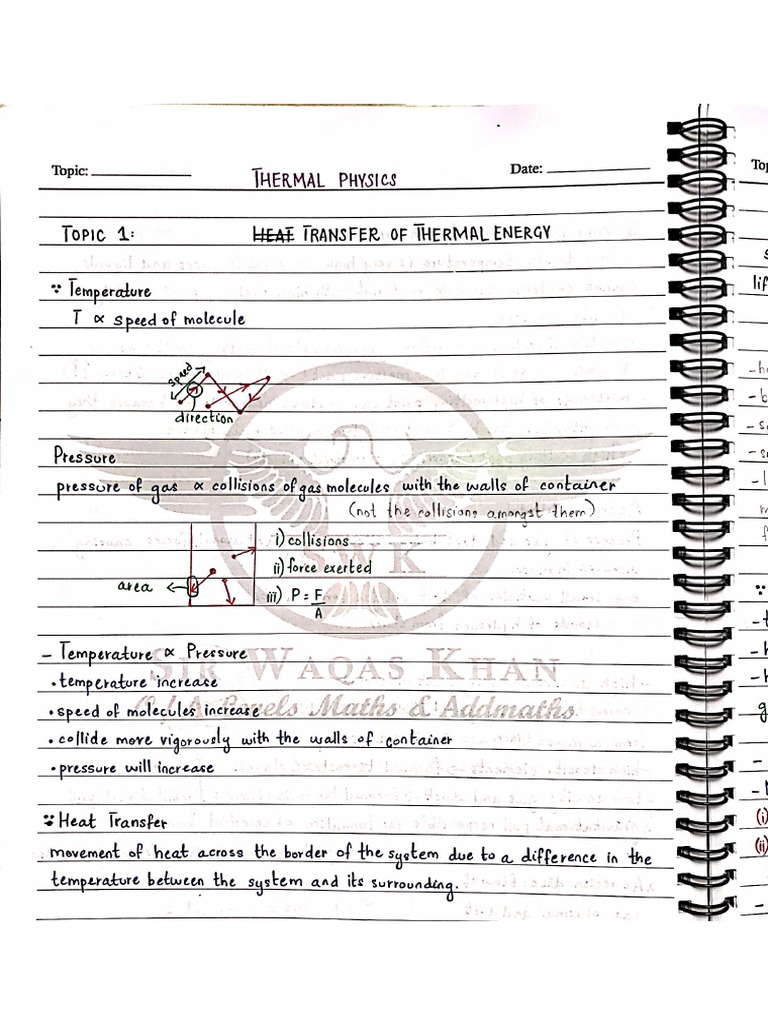 Topic: Date:
THERMAL PHYSICS
TOPIC 1: HEAT TRANSFER OF THERMAL ENERGY
Temperature
T ∝ speed of molecule
speed
direction
Pressure
pressure of gas ∝ collisions of gas molecules with the walls of container
(not the collisions amongst them)
i) collisions
ii) force exerted
area
iii) P = F/A
- Temperature ∝ Pressure
• temperature increase
• speed of molecules increase
• collide move vigorously with the walls of container
• pressure will increase
Heat Transfer
movement of heat across the border of the system due to a difference in the
temperature between the system and its surrounding.
SWK
SIR WAQAS KHAN
O / A Levels Maths & Addmaths
Top
lif
(i)
(ii)